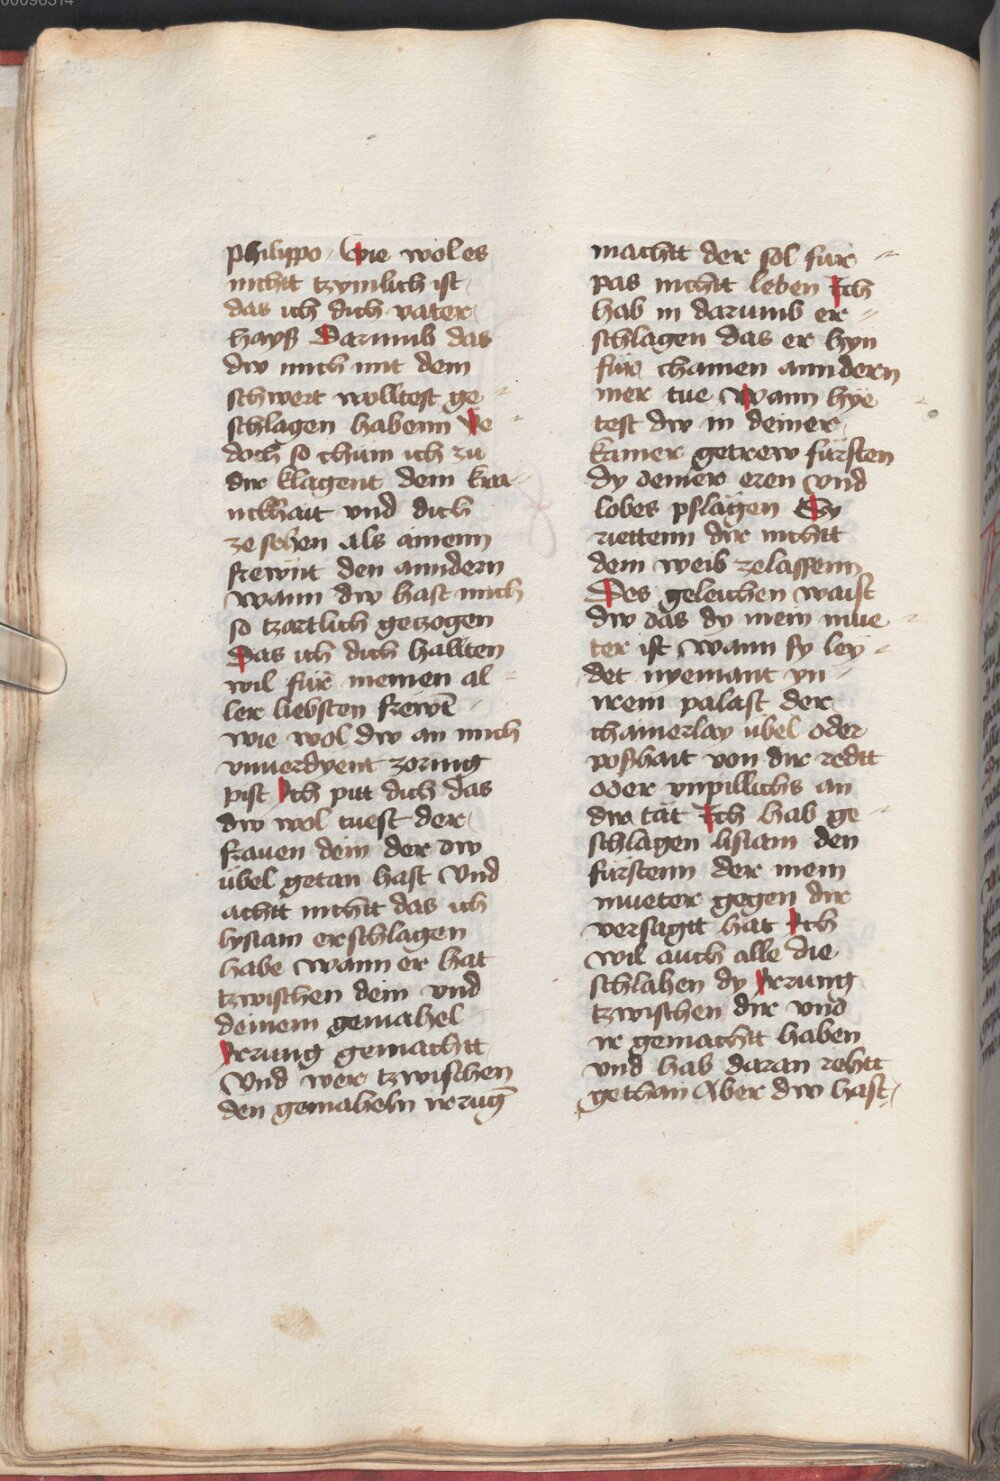 philippo Wie wol es
nichtt tzymlich ist
das ich dich vater
hayß Darumb das
dw mich mit dem
schwert wolltest ge
schlagen habenn Ye
doch so chum ich zu
dir klagent dem kra-
nckhait vnd dich
ze sehen als ainenn
frewnt den anndern
wann dw hast mich
so tzartlich getzogen
Das ich dich hallten
wil für meinen al
ler liebsten frewnt
wie wol dw an mich
vnuerdyent zornig
pist Ich pitt dich das
dw wol tuest der
frauen dein der dw
übel getan hast Vnd
achtt nichtt das ich
lysiam erschlagen
habe wann er hat
tzwischen dein vnd
deinem gemahel
Irrung gemachtt
Vnd wer tzwischen
den gemaheln irrūg
machtt der sol für
pas nichtt leben Ich
hab in darumb er
schlagen das er hyn
für chainen anndern
mer tue Wann hye
test dw in deiner
kamer getrew fürsten
dy deiner eren vnd
lobes pflägen Sy
riettenn dir nichtt
dein weib zelassenn
Des geleichen waist
dw das dy mein mue
ter ist wann sy ley
det nyemant yn
irem palast der
chainerlay übel oder
poßhait von dir redtt
oder vnpillichs an
dir tät Ich hab ge
schlagen lisiam den
fürstenn der mein
mueter gegen dir
versagtt hat Ich
wil auch alle die
schlahen dy Irrung
tzwischen dir vnd
ir gemachtt haben
vnd hab daran rehtt
gethan Aber dw hast